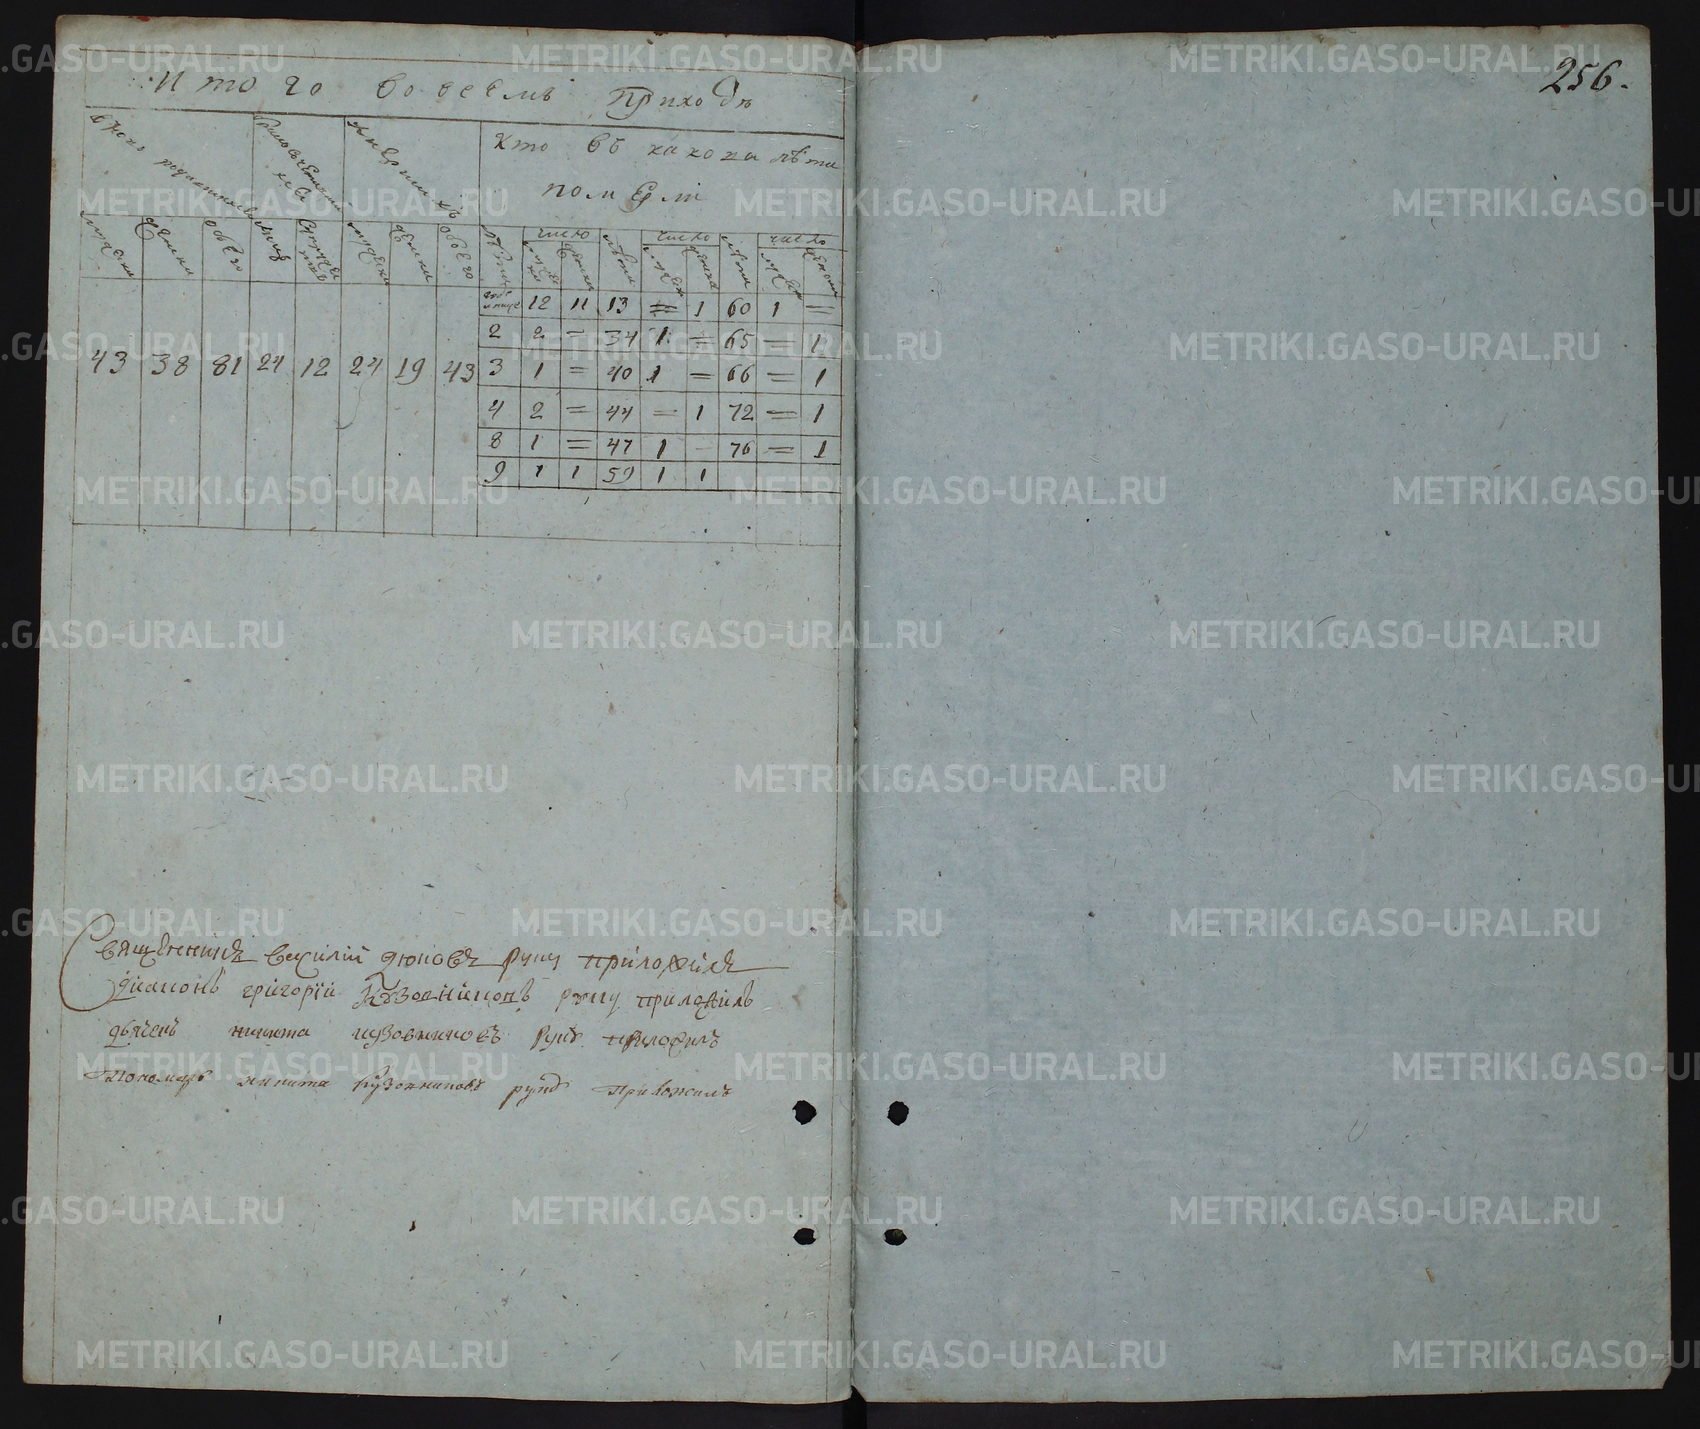 256.
Итого во всемъ приходѣ
Всего родившихся
бракосочетавшихся
умершихъ
Кто въ какова лѣта
померли
мужеска
женска
обоего
мужеска
женска
обоего
лѣта
число
лѣта
число
лѣта
число
43 38 81 24 12 24 19 43
12 11 13 = 1 60 1 =
2 2 = 34 1 = 65 = 1
3 1 = 40 1 = 66 = 1
4 2 = 44 = 1 72 = 1
8 1 = 47 1 - 76 = 1
9 1 1 59 1 1
Священникъ василій руку приложилъ
Диаконъ григорїи Кузовниковъ руку приложилъ
дьячекъ никита кузовниковъ руку приложилъ
Пономарь никита кузовниковъ руку приложилъ
METRIKI.GASO-URAL.RU